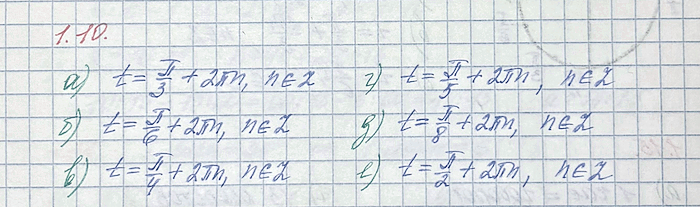 1.10.
а) t = π/3 + 2πn, n∈Z г) t = π/5 + 2πn, n∈Z
б) t = π/6 + 2πn, n∈Z д) t = π/8 + 2πn, n∈Z
в) t = π/4 + 2πn, n∈Z е) t = π/2 + 2πn, n∈Z